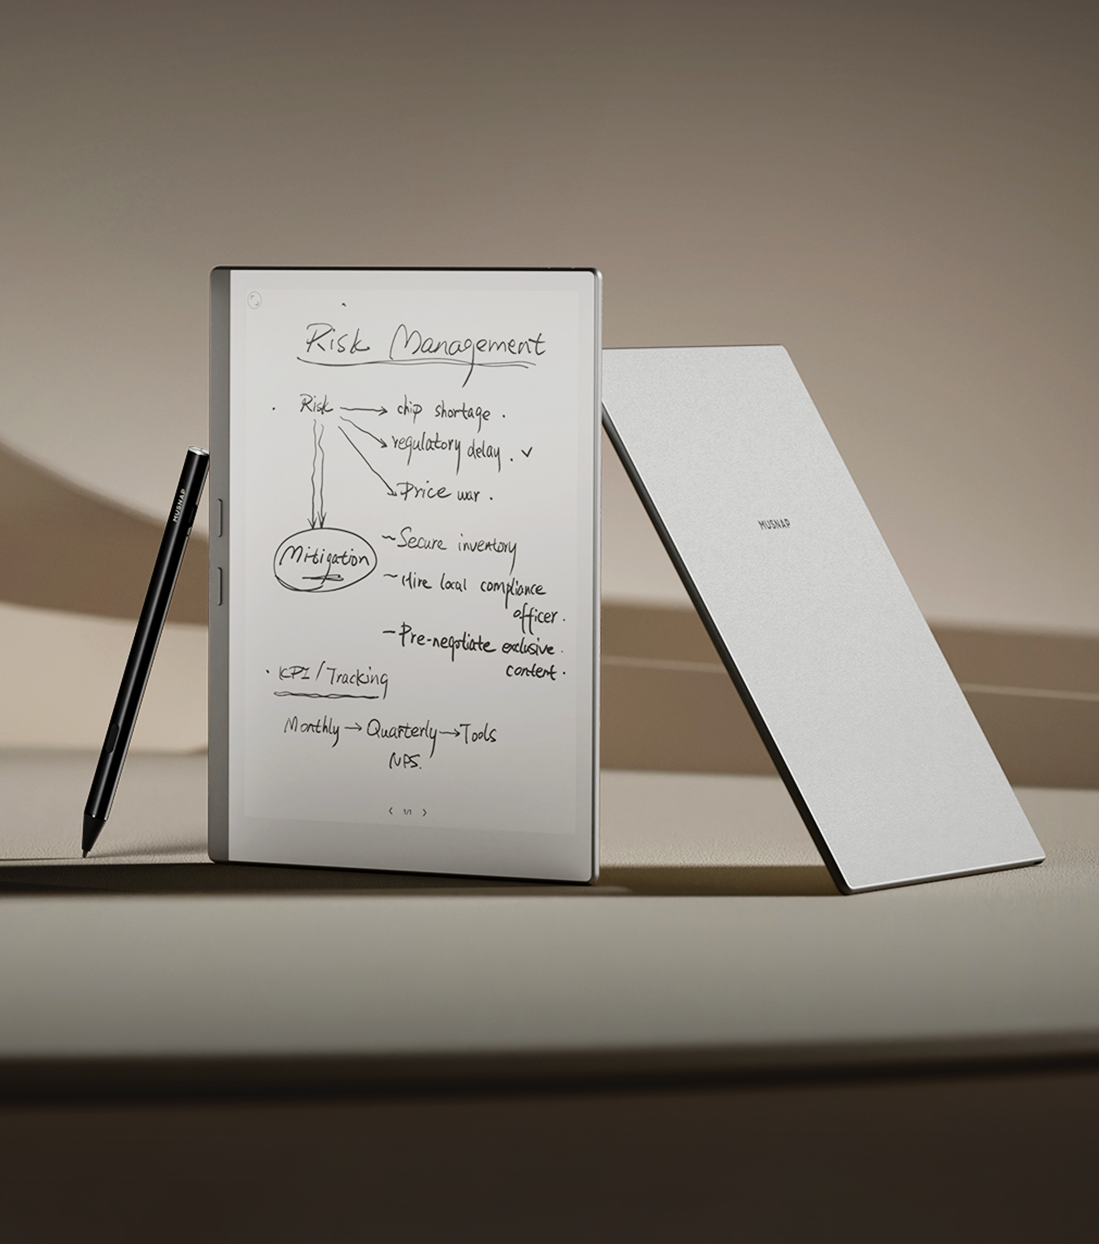 Risk Management
Risk → chip shortage .
regulatory delay . ✓
Price war .
Mitigation
~Secure inventory
~Hire local compliance
officer.
-Pre-negotiate exclusive
content.
· KPI / Tracking
Monthly → Quarterly → Tools
NPS.
< 1/1 >
MUSNAP
MUSNAP